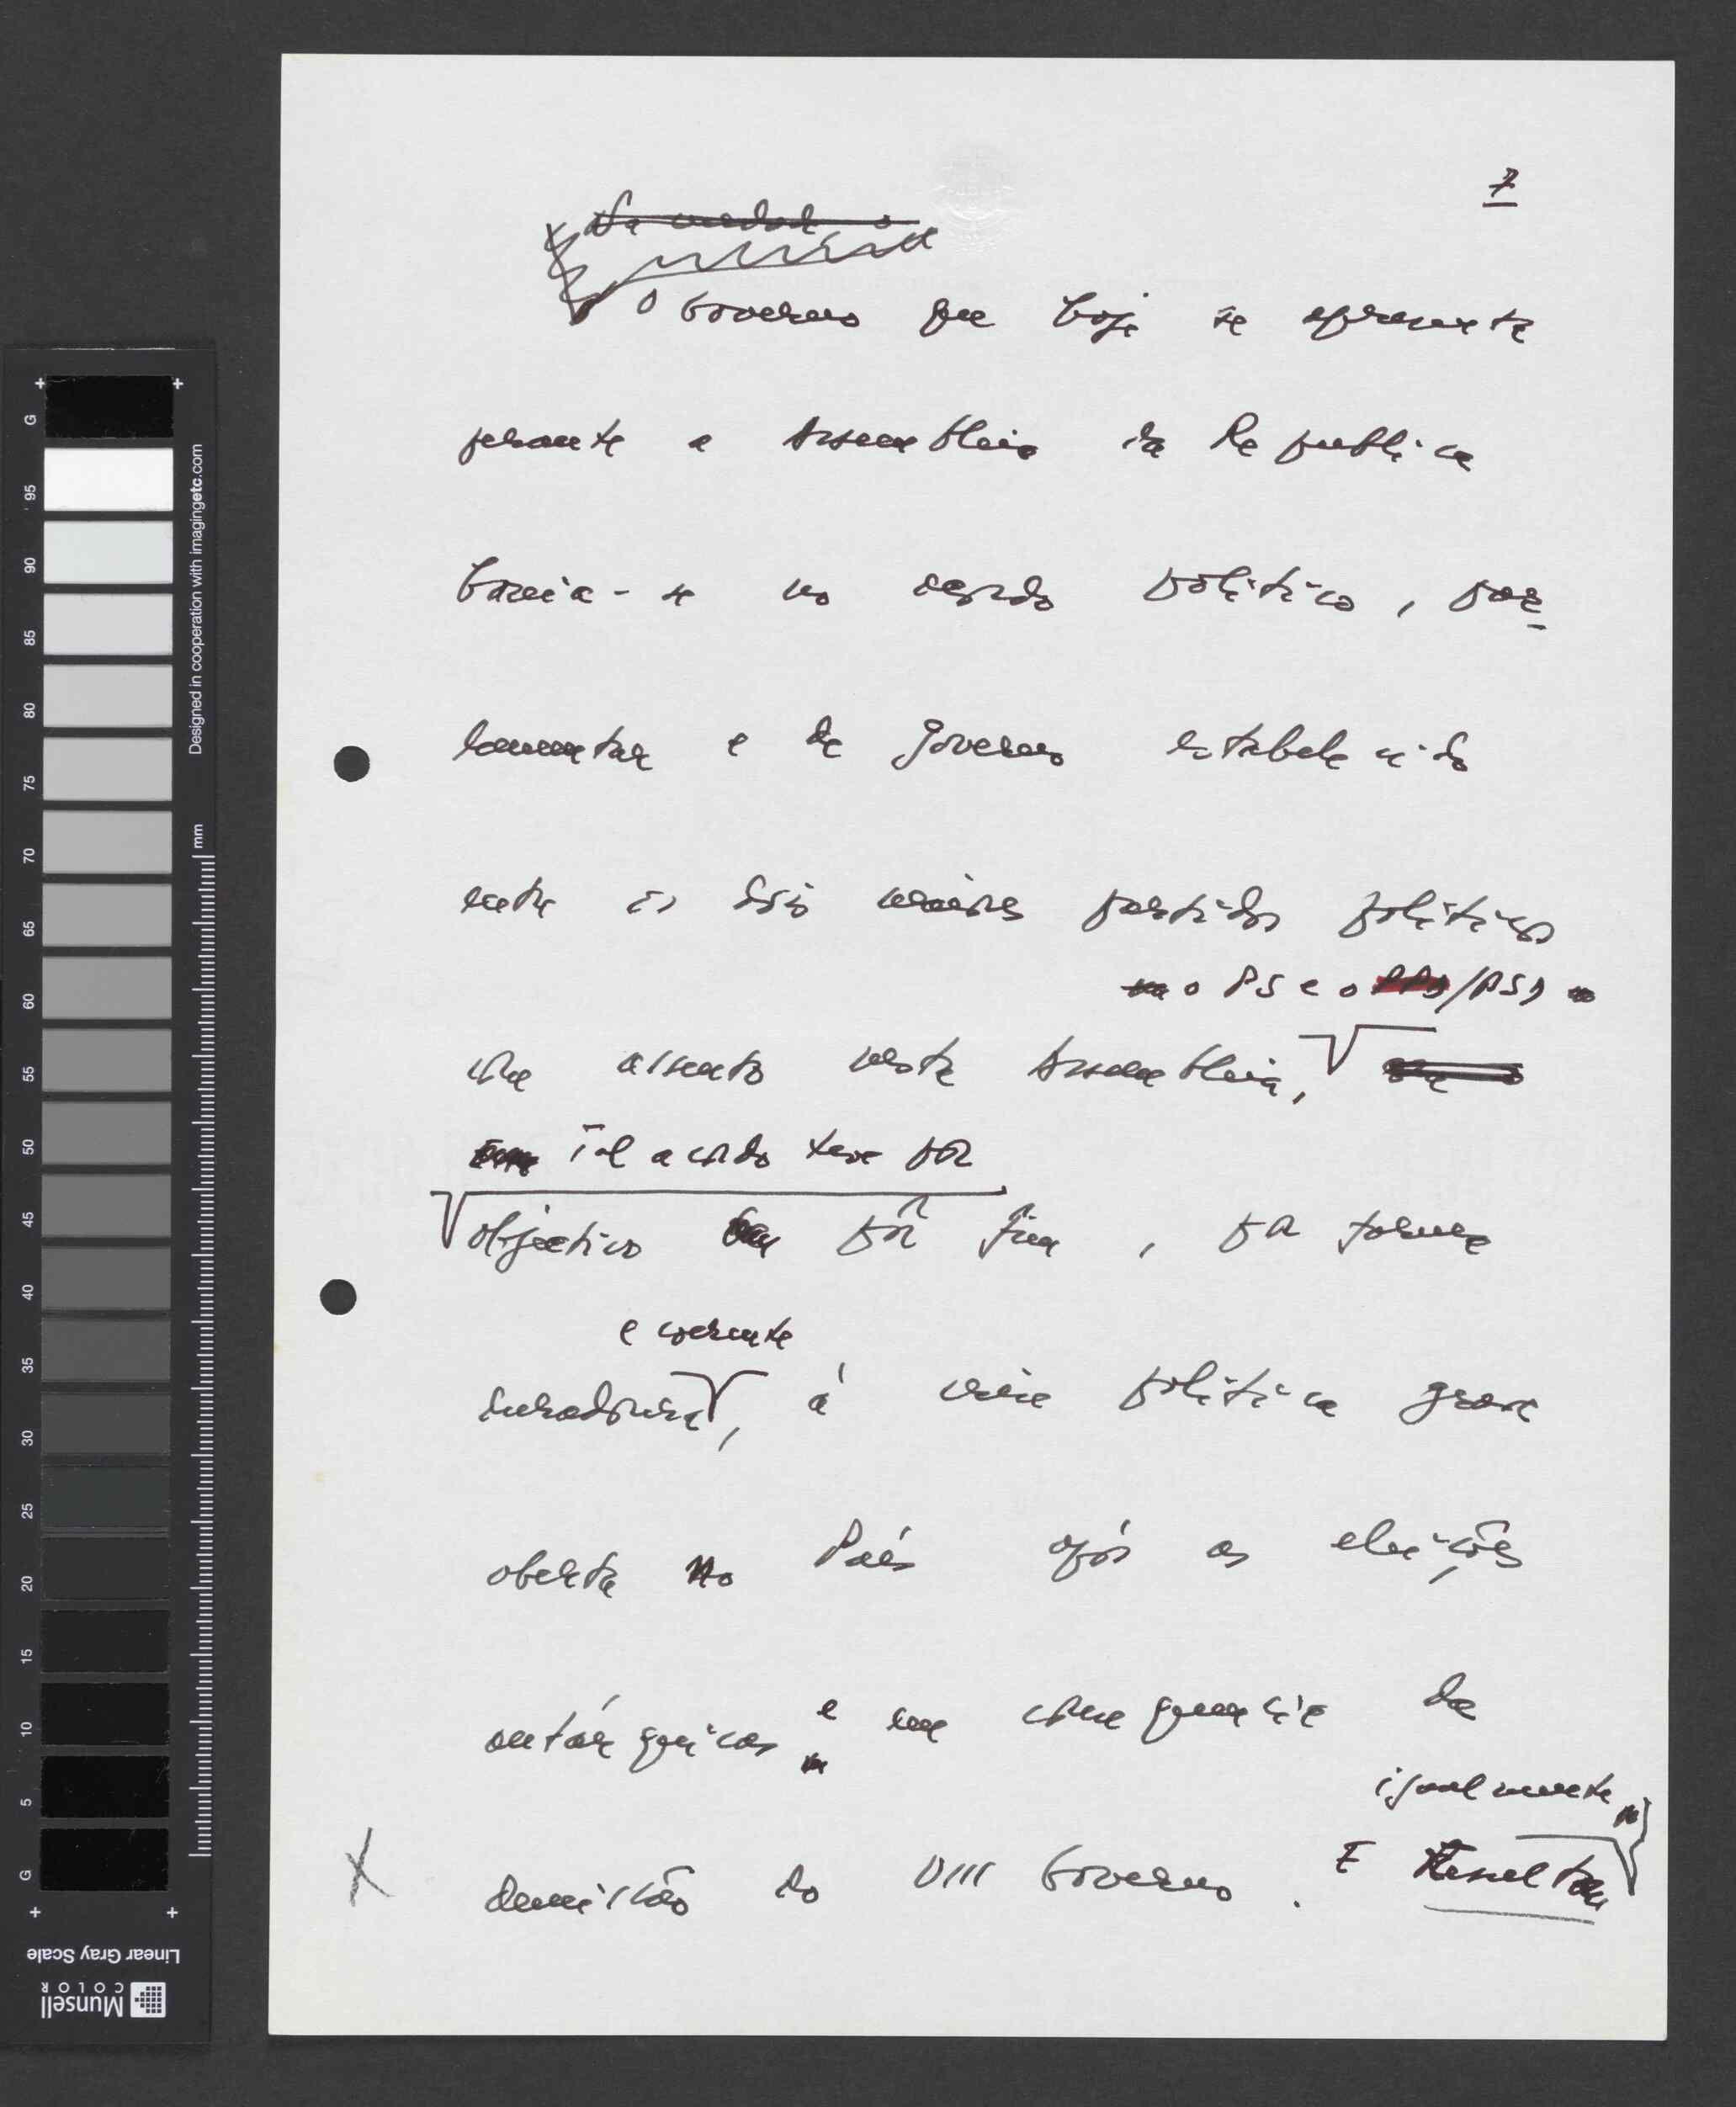 7
O Governo que hoje se apresenta
perante a Assembleia da República
baseia-se no acordo político, par-
lamentar e de governo estabelecido
entre os dois maiores partidos políticos
o PS e o PPD/PSD
com assento nesta Assembleia,
Tal acordo teve por
objectivo pôr fim, por forma
e coerente
duradoura, à crise política grave
aberta no País após as eleições
autárquicas e em consequência da
igualmente
demissão do VIII Governo. E Resultou
G
95
90
85
80
75
70
65
60
55
50
45
40
35
30
25
20
15
10
5
G
Designed in cooperation with imagingetc.com
mm
Linear Gray Scale
Munsell
COLOR